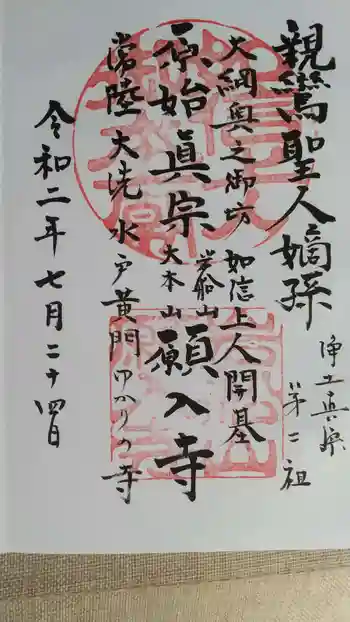 親鸞聖人嫡孫
浄土真宗
第二祖
大網奥之御坊
如信上人開基
原始真宗
岩船山
大本山
願入寺
常陸大洗水戸黄門ゆかりの寺
令和二年七月二十四日